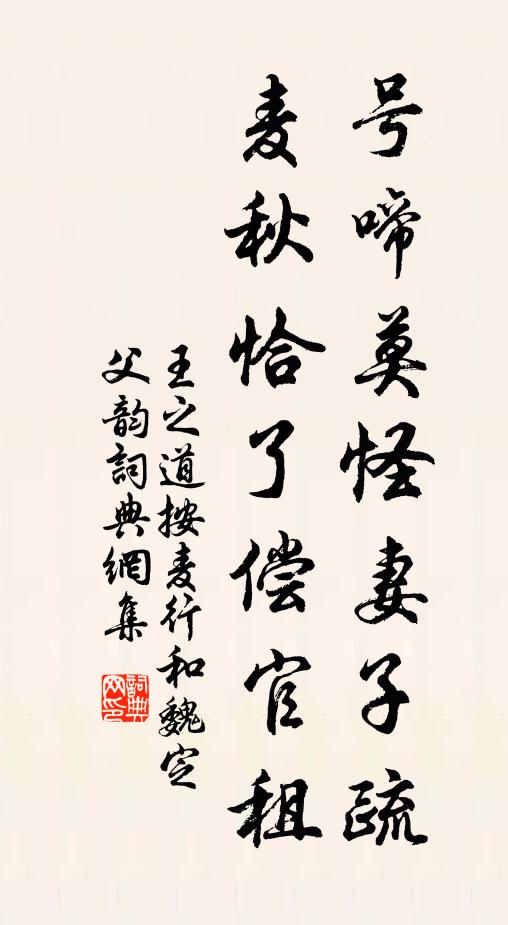 号啼莫怪妻子疏
麦秋恰了偿官租
王之道按麦行和魏定
父韵詞典網集
詞典网印